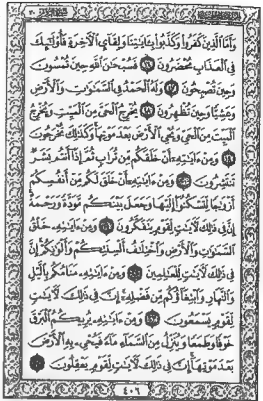 وَأَمَّا ٱلَّذِينَ كَفَرُوا۟ وَكَذَّبُوا۟ بِـَٔايَٰتِنَا وَلِقَآئِ ٱلْءَاخِرَةِ فَأُو۟لَٰٓئِكَ
فِى ٱلْعَذَابِ مُحْضَرُونَ فَسُبْحَٰنَ ٱللَّهِ حِينَ تُمْسُونَ
وَحِينَ تُصْبِحُونَ وَلَهُ ٱلْحَمْدُ فِى ٱلسَّمَٰوَٰتِ وَٱلْأَرْضِ
وَعَشِيًّا وَحِينَ تُظْهِرُونَ يُخْرِجُ ٱلْحَىَّ مِنَ ٱلْمَيِّتِ وَيُخْرِجُ
ٱلْمَيِّتَ مِنَ ٱلْحَىِّ وَيُحْىِ ٱلْأَرْضَ بَعْدَ مَوْتِهَا وَكَذَٰلِكَ تُخْرَجُونَ
وَمِنْ ءَايَٰتِهِۦٓ أَنْ خَلَقَكُم مِّن تُرَابٍ ثُمَّ إِذَآ أَنتُم بَشَرٌ
تَنتَشِرُونَ وَمِنْ ءَايَٰتِهِۦٓ أَنْ خَلَقَ لَكُم مِّنْ أَنفُسِكُمْ
أَزْوَٰجًا لِّتَسْكُنُوٓا۟ إِلَيْهَا وَجَعَلَ بَيْنَكُم مَّوَدَّةً وَرَحْمَةً
إِنَّ فِى ذَٰلِكَ لَءَايَٰتٍ لِّقَوْمٍ يَتَفَكَّرُونَ وَمِنْ ءَايَٰتِهِۦ خَلْقُ
ٱلسَّمَٰوَٰتِ وَٱلْأَرْضِ وَٱخْتِلَٰفُ أَلْسِنَتِكُمْ وَأَلْوَٰنِكُمْ إِنَّ
فِى ذَٰلِكَ لَءَايَٰتٍ لِّلْعَٰلِمِينَ وَمِنْ ءَايَٰتِهِۦ مَنَامُكُم بِٱلَّيْلِ
وَٱلنَّهَارِ وَٱبْتِغَآؤُكُم مِّن فَضْلِهِۦٓ إِنَّ فِى ذَٰلِكَ لَءَايَٰتٍ
لِّقَوْمٍ يَسْمَعُونَ وَمِنْ ءَايَٰتِهِۦ يُرِيكُمُ ٱلْبَرْقَ
خَوْفًا وَطَمَعًا وَيُنَزِّلُ مِنَ ٱلسَّمَآءِ مَآءً فَيُحْىِۦ بِهِ ٱلْأَرْضَ
بَعْدَ مَوْتِهَآ إِنَّ فِى ذَٰلِكَ لَءَايَٰتٍ لِّقَوْمٍ يَعْقِلُونَ
٤٠٦